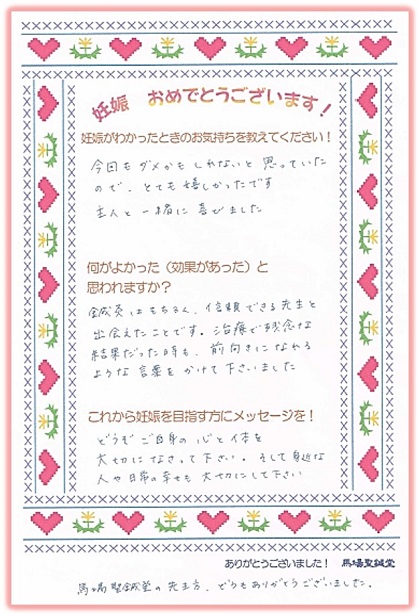 妊娠 おめでとうございます！
妊娠がわかったときのお気持ちを教えてください！
今回もダメかもしれないと思っていた
ので、とても嬉しかったです
主人と一緒に喜びました
何がよかった（効果があった）と
思われますか？
鍼灸はもちろん、信頼できる先生と
出会えたことです。治療で残念な
結果だった時も、前向きになれる
ような言葉をかけて下さいました
これから妊娠を目指す方にメッセージを！
どうぞご自身の心と体を
大切になさって下さい。そして身近な
人や日常の幸せも大切にして下さい
ありがとうございました！ 馬場聖鍼堂
馬場聖鍼堂の先生方、どうもありがとうございました。